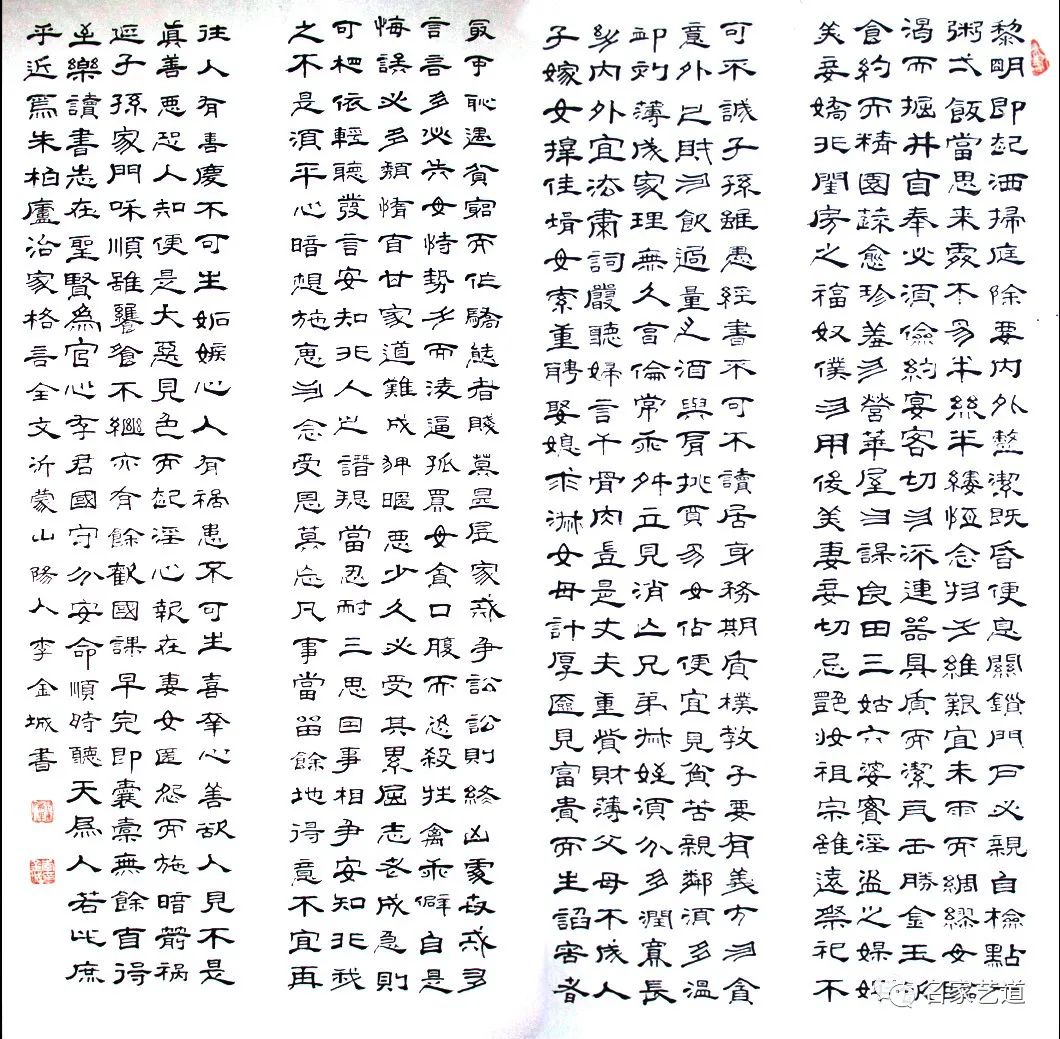 黎明即起洒掃庭除要内外整潔既昏便息關鎖門戶必親自檢點
粥弌飯當思来處不易半絲半縷恆念物力維艱宜未雨而綢繆毋臨
渴而掘井自奉必須儉約宴客切勿流連器具質而潔瓦缶勝金玉飲
食約而精園蔬愈珍羞勿營華屋勿謀良田三姑六婆實淫盜之媒婢
美妾嬌非閨房之福奴僕勿用後美妻妾切忌艷妝祖宗雖遠祭祀不
可不誠子孫雖愚經書不可不讀居身務期質樸教子要有義方勿貪
意外之財勿飲過量之酒與肩挑貿易毋佔便宜見貧苦親鄰須多溫
卹刻薄成家理無久享倫常乖舛立見消亡兄弟叔姪須分多潤寡長
幼内外宜法肅詞嚴聽婦言乖骨肉豈是丈夫重貲財薄父母不成人
子嫁女擇佳壻毋索重聘娶媳求淑女毋計厚匳見富貴而生諂容者
最可恥遇貧窮而作驕態者賤莫甚居家戒爭訟訟則終凶處世戒多
言言多必失毋恃勢力而淩逼孤寡毋貪口腹而恣殺牲禽乖僻自是
悔誤必多頹惰自甘家道難成狎暱惡少久必受其累屈志老成急則
可相依輕聽發言安知非人之譖愬當忍耐三思因事相爭安知非我
之不是須平心暗想施惠勿念受恩莫忘凡事當留餘地得意不宜再
往人有善慶不可生妒嫉心人有禍患不可生喜幸心善欲人見不是
眞善惡恐人知便是大惡見色而起淫心報在妻女匿怨而施暗箭禍
延子孫家門和順雖饔飧不繼亦有餘歡國課早完即囊橐無餘自得
至樂讀書志在聖賢為官心存君國守分安命順時聽天為人若比庶
乎近焉朱柏廬治家格言全文沂蒙山陽人李金城書
名家艺道